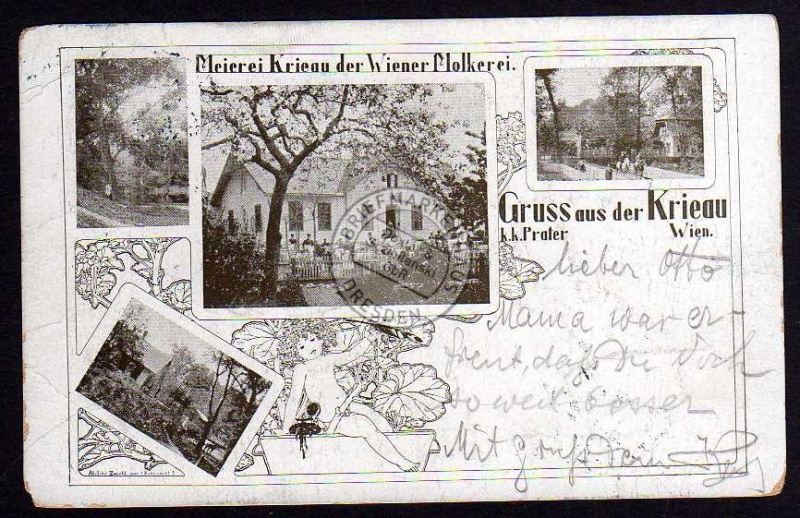 Meierei Krieau der Wiener Molkerei.
Gruss aus der Krieau
k.k. Prater Wien.
lieber Otto
Mama war er-
freut, daß Du Dich
so weit besser
Mit Gruß Dein
BRIEFMARKENHAUS
DRESDEN